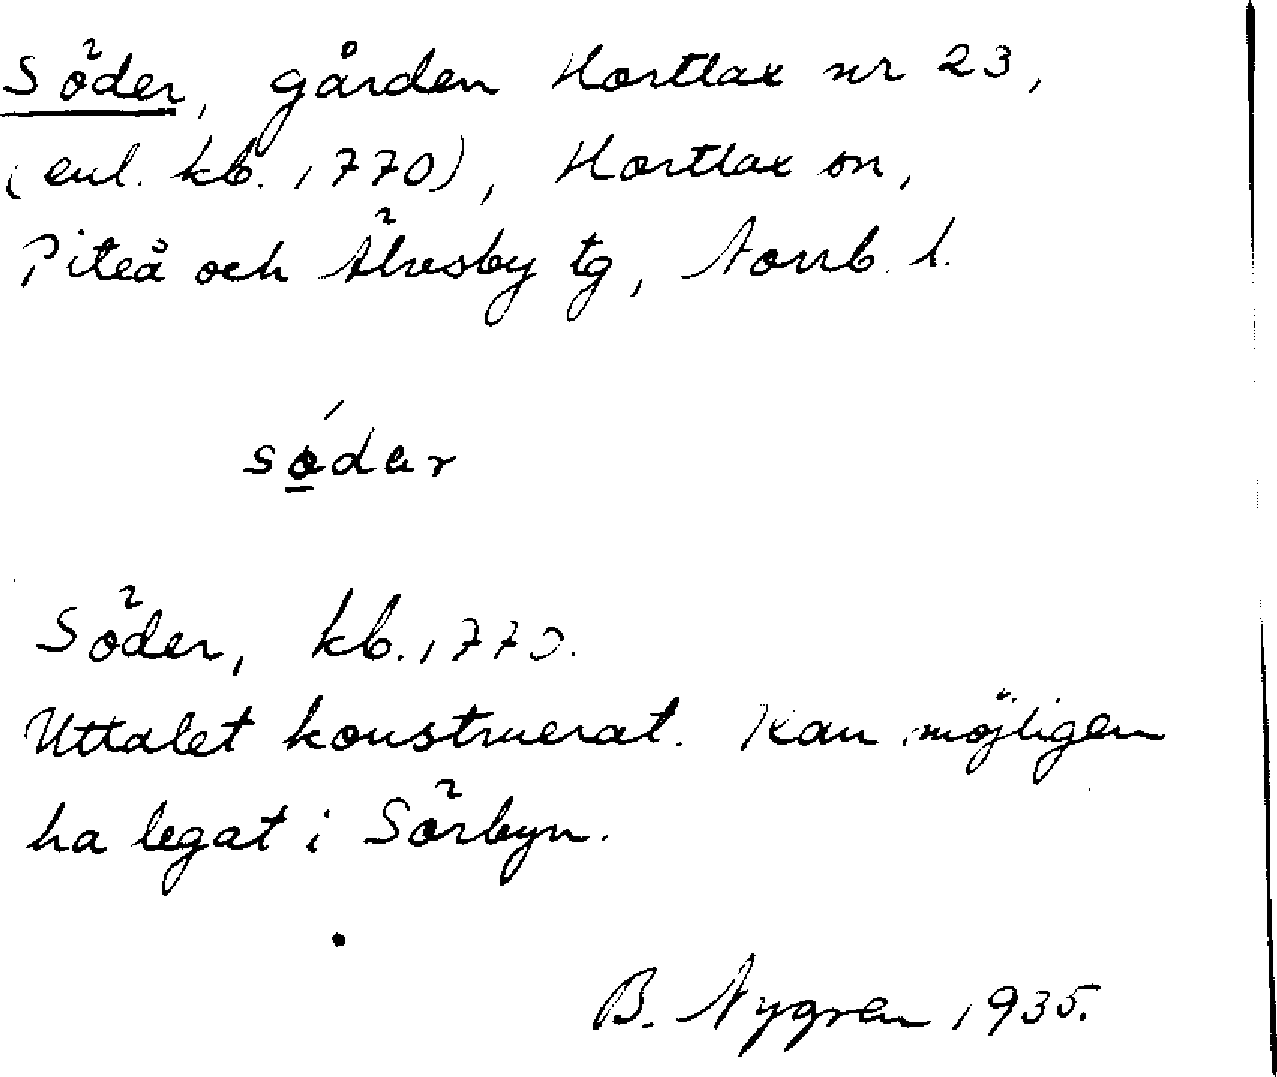 Söder, gården Hortlax nr 23,
(enl. kb. 1770), Hortlax sn,
Piteå och Älvsby tg, Norrb. l.
södar
Söder, kb. 1770.
Uttalet konstruerat. Kan möjligen
ha legat i Sörbyn.
B. Nygren 1935.